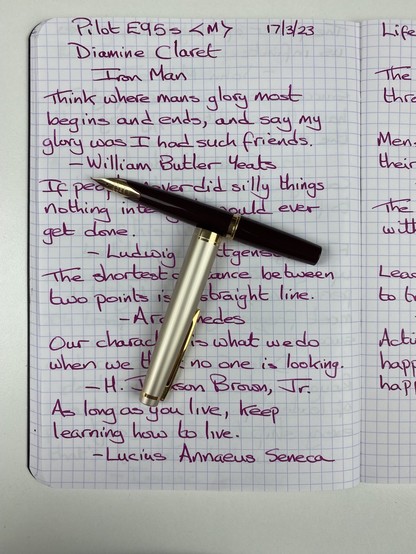 Pilot E95s <M> 17/3/23
Diamine Claret
Iron Man
Think where mans glory most
begins and ends, and say my
glory was I had such friends.
— William Butler Yeats
If did silly things
nothing ever
get done.
— Ludwig
The shortest between
two points is straight line.
—
Our is what we do
when we no one is looking.
— H. Brown, Jr.
As long as you live, keep
learning how to live.
— Lucius Annaeus Seneca
Life
The
thro
Men
their
The
with
Leas
to t
Actu
happ
happ